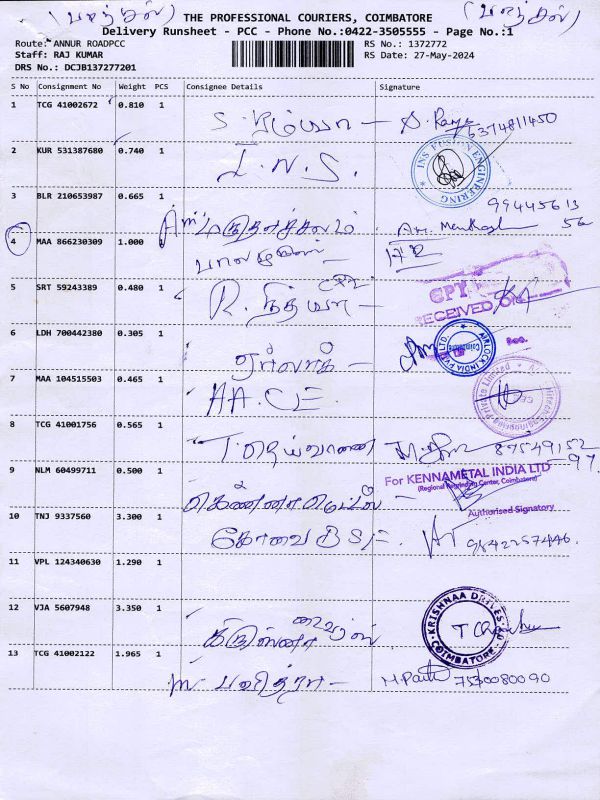 (பழந்தல்)
(பழந்தல்)
THE PROFESSIONAL COURIERS, COIMBATORE
Delivery Runsheet - PCC - Phone No.:0422-3505555 - Page No.:1
Route: ANNUR ROADPCC
RS No.: 1372772
Staff: RAJ KUMAR
RS Date: 27-May-2024
DRS No.: DCJB137277201
S No Consignment No Weight PCS Consignee Details Signature
1 TCG 41002672 0.810 1
S. ரம்யா - S. Ramya
6374811450
2 KUR 531387680 0.740 1
I.N.S.
INS FUSION ENGINEERING
3 BLR 210653987 0.665 1
Am மருதாச்சலம்
9944561356
4 MAA 866230309 1.000 1
5 SRT 59243389 0.480 1
R. நித்யா -
CPT
RECEIVED ON
6 LDH 700442380 0.305 1
ஏர்லாக்
AIRLOCK INDIA PVT LTD
Coimbatore
7 MAA 104515503 0.465 1
A.A.C.E.
Private Limited
8 TCG 41001756 0.565 1
T. தெய்வானை
8754915297
9 NLM 60499711 0.500 1
கென்னாமெட்டல் -
For KENNAMETAL INDIA LTD
(Regional Regrinding Center, Coimbatore)
Authorised Signatory
10 TNJ 9337560 3.300 1
கோவை
9842257446.
11 VPL 124340630 1.290 1
12 VJA 5607948 3.350 1
கிருஸ்ணா டிரைவ்ஸ்
KRISHNAA DRIVES
COIMBATORE
13 TCG 41002122 1.965 1
M பவித்ரா -
7530080090